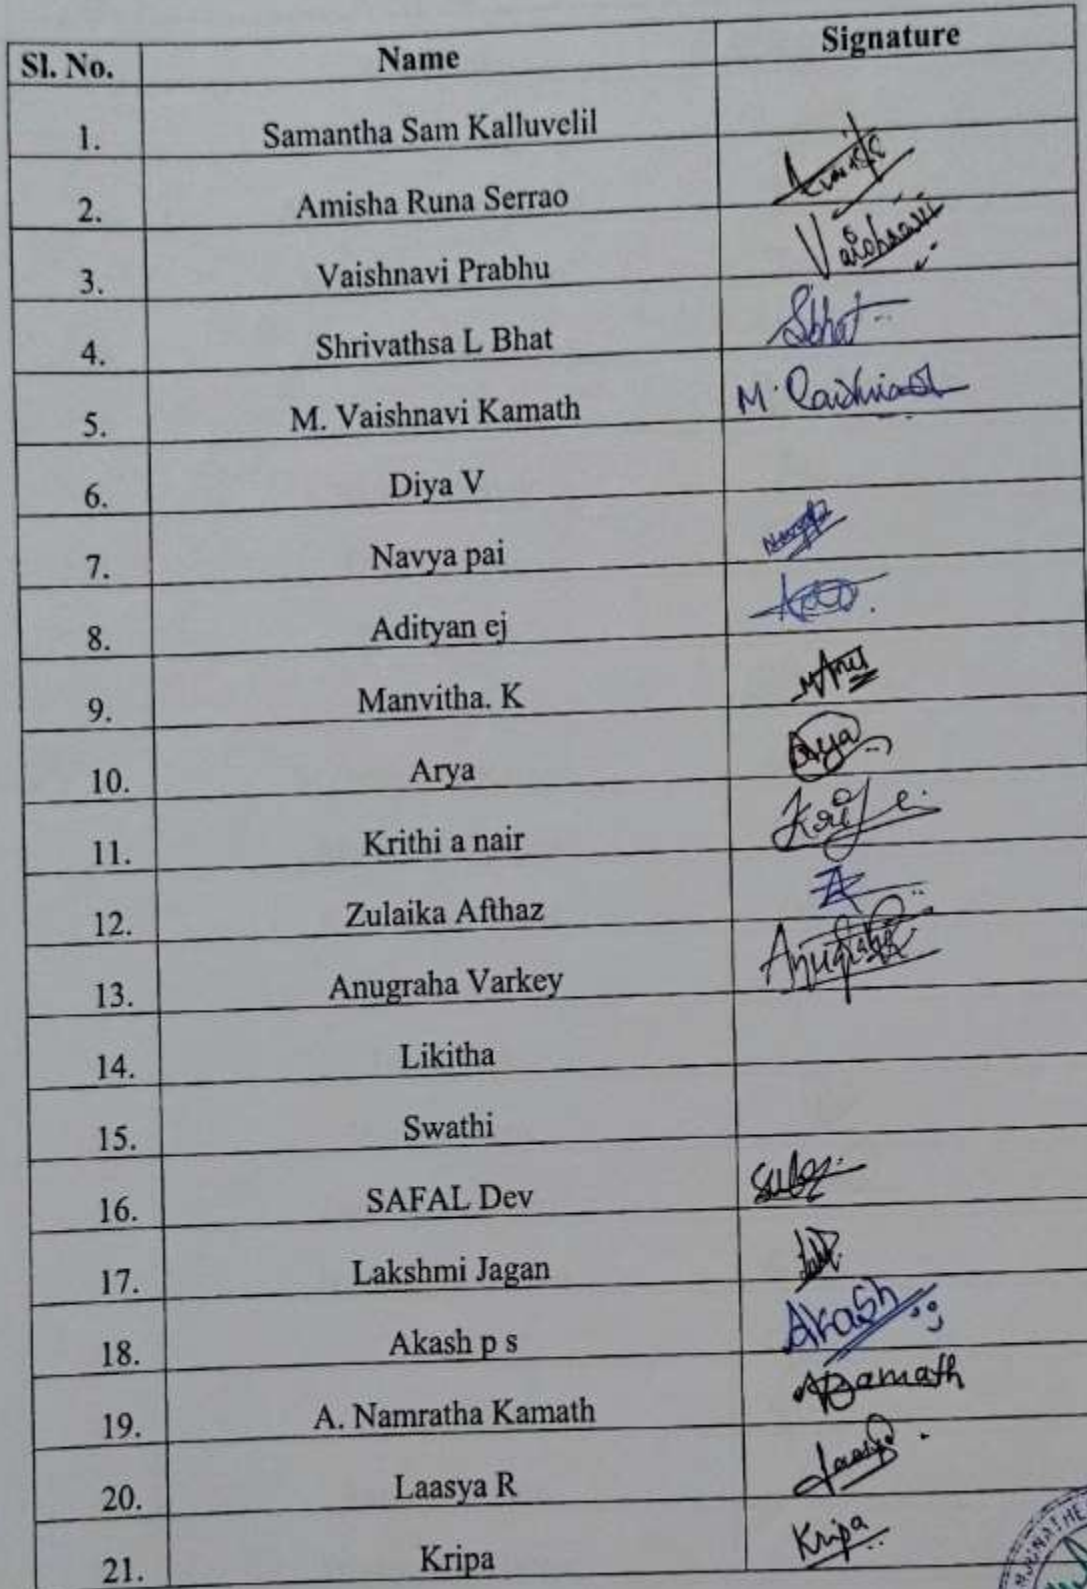 Sl. No. Name Signature
1. Samantha Sam Kalluvelil
2. Amisha Runa Serrao
3. Vaishnavi Prabhu Vaishnavi
4. Shrivathsa L Bhat Sbhat
5. M. Vaishnavi Kamath M.
6. Diya V
7. Navya pai
8. Adityan ej
9. Manvitha. K
10. Arya Arya
11. Krithi a nair
12. Zulaika Afthaz
13. Anugraha Varkey Anugraha
14. Likitha
15. Swathi
16. SAFAL Dev
17. Lakshmi Jagan
18. Akash p s Akash
19. A. Namratha Kamath
20. Laasya R Laasya
21. Kripa Kripa